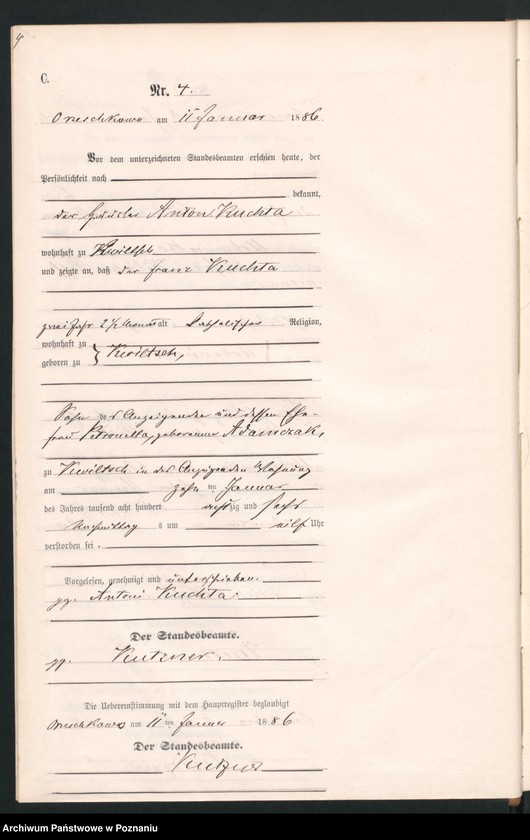 4
C.
Nr. 4.
Orzeschkowo am 11 Januar 1886.
Vor dem unterzeichneten Standesbeamten erschien heute, der
Persönlichkeit nach
bekannt,
der Häusler Anton Kuchta
wohnhaft zu Kwiltsch
und zeigte an, daß der Franz Kuchta
zwei Jahr 2 1/2 Monat alt katholischer Religion,
wohnhaft zu
geboren zu } Kwiltsch,
Sohn des Anzeigenden und dessen Ehe-
frau Petronella, geborenen Adamczak,
zu Kwiltsch in des Anzeigenden Wohnung
am zehn ten Januar
des Jahres tausend acht hundert achtzig und sechs
Nachmittag s um eilf Uhr
verstorben sei.
Vorgelesen, genehmigt und unterschrieben.
gz. Antoni Kuchta.
Der Standesbeamte.
Kutzner.
Die Uebereinstimmung mit dem Hauptregister beglaubigt
Orzeschkowo am 11 ten Januar 1886
Der Standesbeamte.
Kutzner
Archiwum Państwowe w Poznaniu